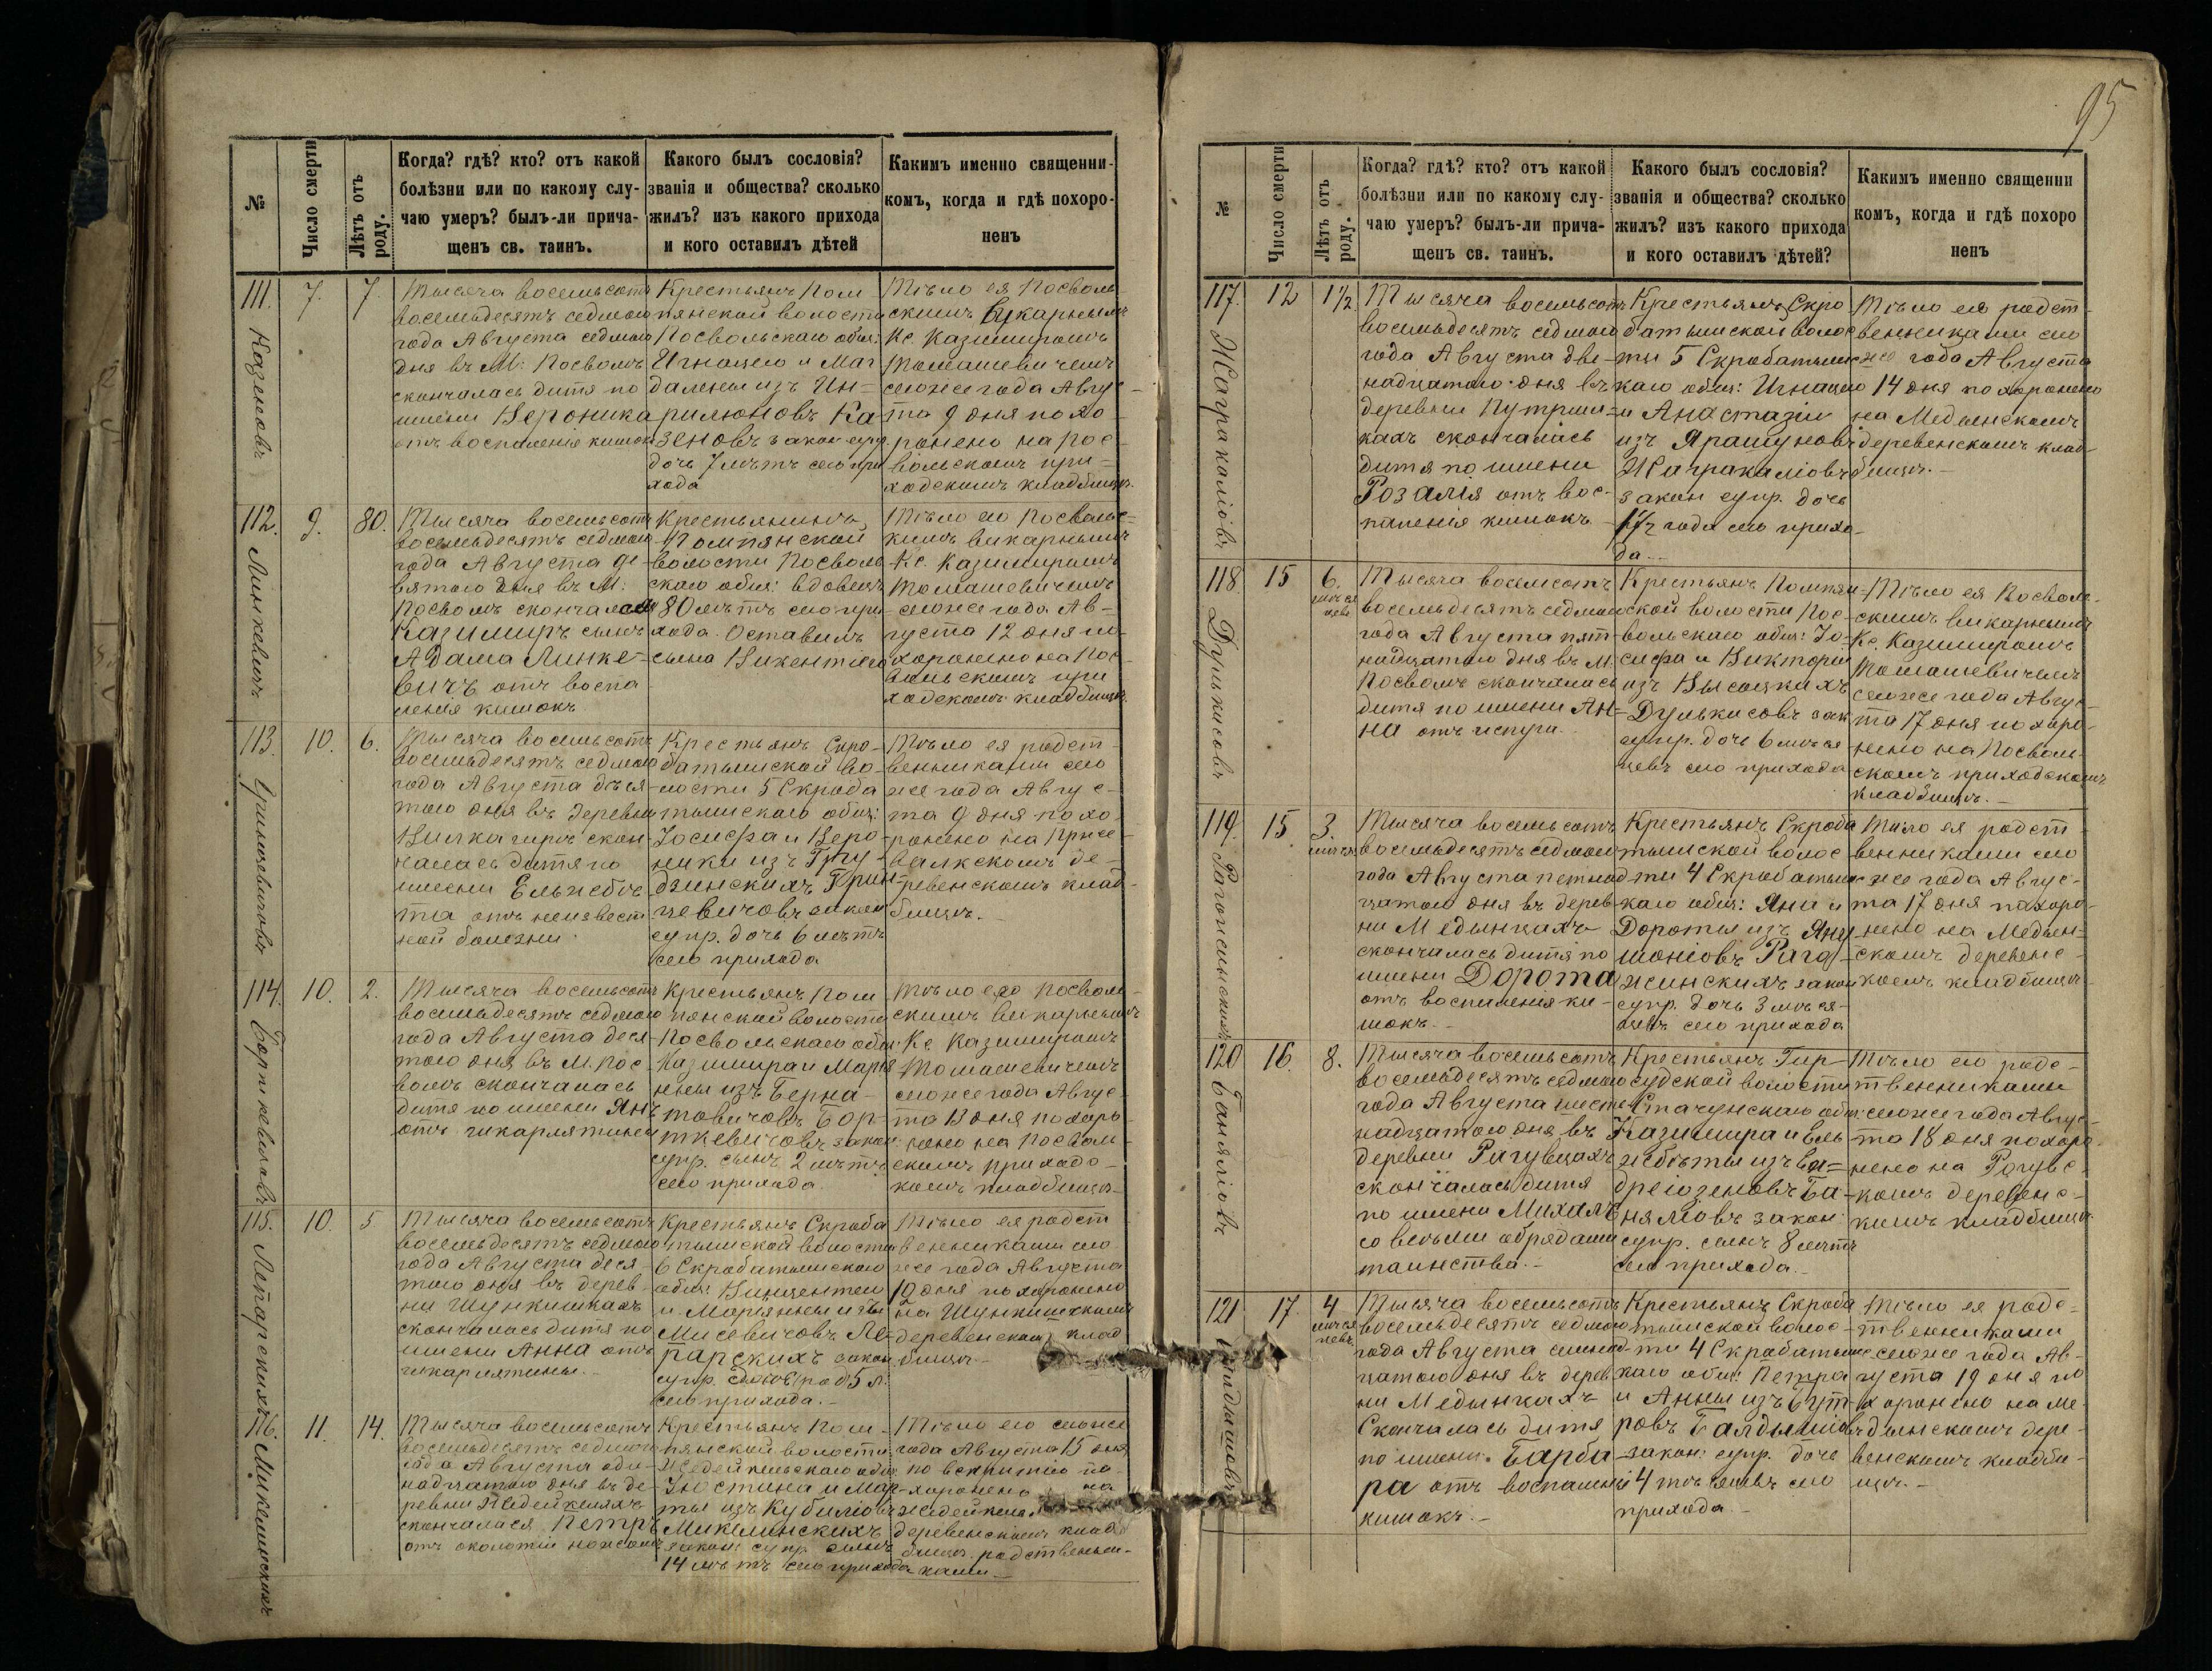 95
№
Число смерти
Лѣтъ отъ роду.
Когда? гдѣ? кто? отъ какой
болѣзни или по какому слу-
чаю умеръ? былъ-ли прича-
щенъ св. таинъ.
Какого былъ сословія?
званія и общества? сколько
жилъ? изъ какого прихода
и кого оставилъ дѣтей
Какимъ именно священни-
комъ, когда и гдѣ похоро-
ненъ
111.
7.
7.
Тысяча восемьсотъ
восемьдесятъ седмого
года Августа седмого
дня въ М: Посволѣ
скончалась дитя по
имени Вероника
отъ воспаленіе кишокъ
Крестьянъ Пом
пянской волости
Посвольскаго общ:
Игнацего и Маг
далены изъ Ин-
рилюновъ Ка
зеновъ закон супр.
дочь 7 лѣтъ сего при
хода
Тѣло ея Посволь
скимъ Викарнымъ
Кс. Казимиромъ
Томашевичемъ
сегоже года Авгус-
та 9 дня похо
ронено на Пос-
вольскомъ при-
ходскомъ кладбищѣ.
112.
Линкевичъ
9.
80.
Тысяча восемьсотъ
восемьдесятъ седмого
года Августа де-
вятого дня въ М:
Посволѣ скончался
Казимиръ сынъ
Адама Линке-
вичъ отъ воспа
ленія кишокъ
Крестьянинъ
Помпянской
волости Посволь
скаго общ: вдовецъ
80 лѣтъ сего при
хода. Оставилъ
сына Викентіего
Тѣло его Посволь-
кимъ викарнымъ
Кс. Казимиромъ
Томашевичемъ
сегоже года Ав-
густа 12 дня по-
хоронено на Пос-
вольскомъ при
ходскомъ кладбищѣ.
113.
10.
6.
Тысяча восемьсотъ
восемьдесятъ седмого
года Августа деся-
того дня въ деревни
скон-
чалась дитя по
имени Ельжебѣ
та отъ неизвест
ной болезни
Крестьянъ Скро-
батышской во-
лости 5 Скроба
тышскаго общ:
Іосифа и Веро-
ники изъ Гру-
дзинскихъ Грин-
цевичовъ закон
супр. дочь 6 лѣтъ
сего прихода
Тѣло ея родст-
венниками сего
же года Авгус-
та 9 дня похо
ронено на
де-
ревенскомъ клад-
бищѣ.-
114.
10.
2.
Тысяча восемьсотъ
восемьдесятъ седмого
года Августа деся-
того дня въ М. Пос-
волѣ скончалась
дитя по имени Янъ
отъ шкарлятины
Крестьянъ Пом
пянской волости
Посвольскаго общ:
Казимира и Маріа
нны изъ Берна-
товичовъ Бор-
ткевичовъ закон
супр. сынъ 2 лѣтъ
сего прихода
Тѣло его Посволь-
скимъ викарнымъ
Кс. Казимиромъ
Томашевичемъ
сегоже года Авгус-
та 13 дня похоро
нено на Посволь
скимъ приходс-
комъ кладбищѣ
115.
Лепарскихъ
10.
5
Тысяча восемьсотъ
восемьдесятъ седмого
года Августа деся-
того дня въ дерев-
ни Шункишкахъ
скончалась дитя по
имени Анна отъ
шкарлятины.
Крестьянъ Скроба
тышской волости
6 Скробатышскаго
общ: Винцентего
и Маріянны изъ
Мисевичовъ Ле-
парскихъ закон
супр. 5 л.
сего прихода.-
Тѣло ея родст
венниками сего
же года Августа
похоронено
на
деревенскомъ клад
бищѣ.-
116.
Микелинскихъ
11.
14.
Тысяча восемьсотъ
восемьдесятъ седмого
года Августа оди-
надцатого дня въ де-
ревни
скончался Петръ
отъ
Крестьянъ Пом-
пянской волости
общ:
Юстина и Мар-
ты изъ Кубиліовъ
Микелинскихъ
закон супр сынъ
14 лѣтъ сего прихода
Тѣло его сегоже
года Августа 15 дня
по вскрытію по-
хоронено на
деревенскомъ клад
бищѣ родственни-
ками-
№
Число смерти
Лѣтъ отъ роду.
Когда? гдѣ? кто? отъ какой
болѣзни или по какому слу-
чаю умеръ? былъ-ли прича-
щенъ св. таинъ.
Какого былъ сословія?
званія и общества? сколько
жилъ? изъ какого прихода
и кого оставилъ дѣтей?
Какимъ именно священни
комъ, когда и гдѣ похоро
ненъ
117.
Жагракаліовъ
12
1½
Тысяча восемьсотъ
восемьдесятъ седмого
года Августа две-
надцатого дня въ
деревни Путриш-
кахъ скончалась
дитя по имени
Розалія отъ вос-
паленія кишокъ
Крестьянъ Скро
батышской волос
ти 5 Скробатышс
каго общ: Игнацего
и Анастазіи
изъ Ярашуновъ
Жагракаліовъ
закон супр. дочь
1½ года сего прихо-
да.-
Тѣло ея родст-
венниками сего
же года Августа
14 дня похоронено
на Медынскомъ
деревенскомъ клад-
бищѣ.-
118.
Дулькисовъ
15
6.
мѣсяцевъ
Тысяча восемсотъ
восемьдесятъ седмого
года Августа пят-
надцатого дня въ М.
Посволѣ скончалась
дитя по имени Ан-
на отъ испуга.
Крестьянъ Помпян-
ской волости Пос-
вольскаго общ: Іо-
сифа и Викторіи
изъ Высоцкихъ
Дулькисовъ зак
супр. дочь 6 мѣся
цевъ сего прихода
Тѣло ея Посволь-
скимъ викарнымъ
Кс. Казимиромъ
Томашевичемъ
сегоже года Авгус-
та 17 дня похоро-
нено на Посволь-
скомъ приходскомъ
кладбищѣ.-
119.
15
3.
Тысяча восемьсотъ
восемьдесятъ седмого
года Августа петнад
цатого дня въ дерев-
ни Медынцахъ
скончалась дитя по
имени Дорота
отъ воспаленія ки-
шокъ.-
Крестьянъ Скроба
тышской волос
ти 4 Скробатышс
каго общ: Яна и
Дороты изъ Яну-
шоніовъ Раго-
жинскихъ закон
супр. дочь 3 мѣся-
цевъ сего прихода
Тѣло ея родст
венниками сего
же года Авгус-
та 17 дня похоро-
нено на Медын-
скомъ деревенс-
комъ кладбищѣ
120
Баняліовъ
16.
8.
Тысяча восемьсотъ
восемьдесятъ седмого
года Августа шест
надцатого дня въ
деревни Рагувцахъ
скончалась дитя
по имени Михалъ
со всѣми обрядами
таинства.-
Крестьянъ Гир-
судской волости
Стачунскаго общ:
Казимира и Ель
жбѣты изъ
Ба-
няліовъ закон:
супр. сынъ 8 лѣтъ
сего прихода.-
Тѣло его родс-
твенниками
сегоже года Авгус-
та 18 дня похоро
нено на Рагувс-
комъ деревенс-
кимъ кладбищѣ
121
17.
4
мѣсяцевъ
Тысяча восемьсотъ
восемьдесятъ седмого
года Августа семнад-
цатого дня въ дерев
ни Медынкахъ
Скончалась дитя
по имени Барба
ра отъ воспаленій
кишокъ.-
Крестьянъ Скроба
тышской волос-
ти 4 Скробатышс
каго общ: Петра
и Анны изъ Бут-
ровъ Балдышіовъ
закон: супр. дочь
4 мѣсяцевъ сего
прихода.-
Тѣло ея родс-
твенниками
сегоже года Ав-
густа 19 дня по
хоронено на Ме-
дынскомъ дере-
венскомъ кладби-
щѣ.-